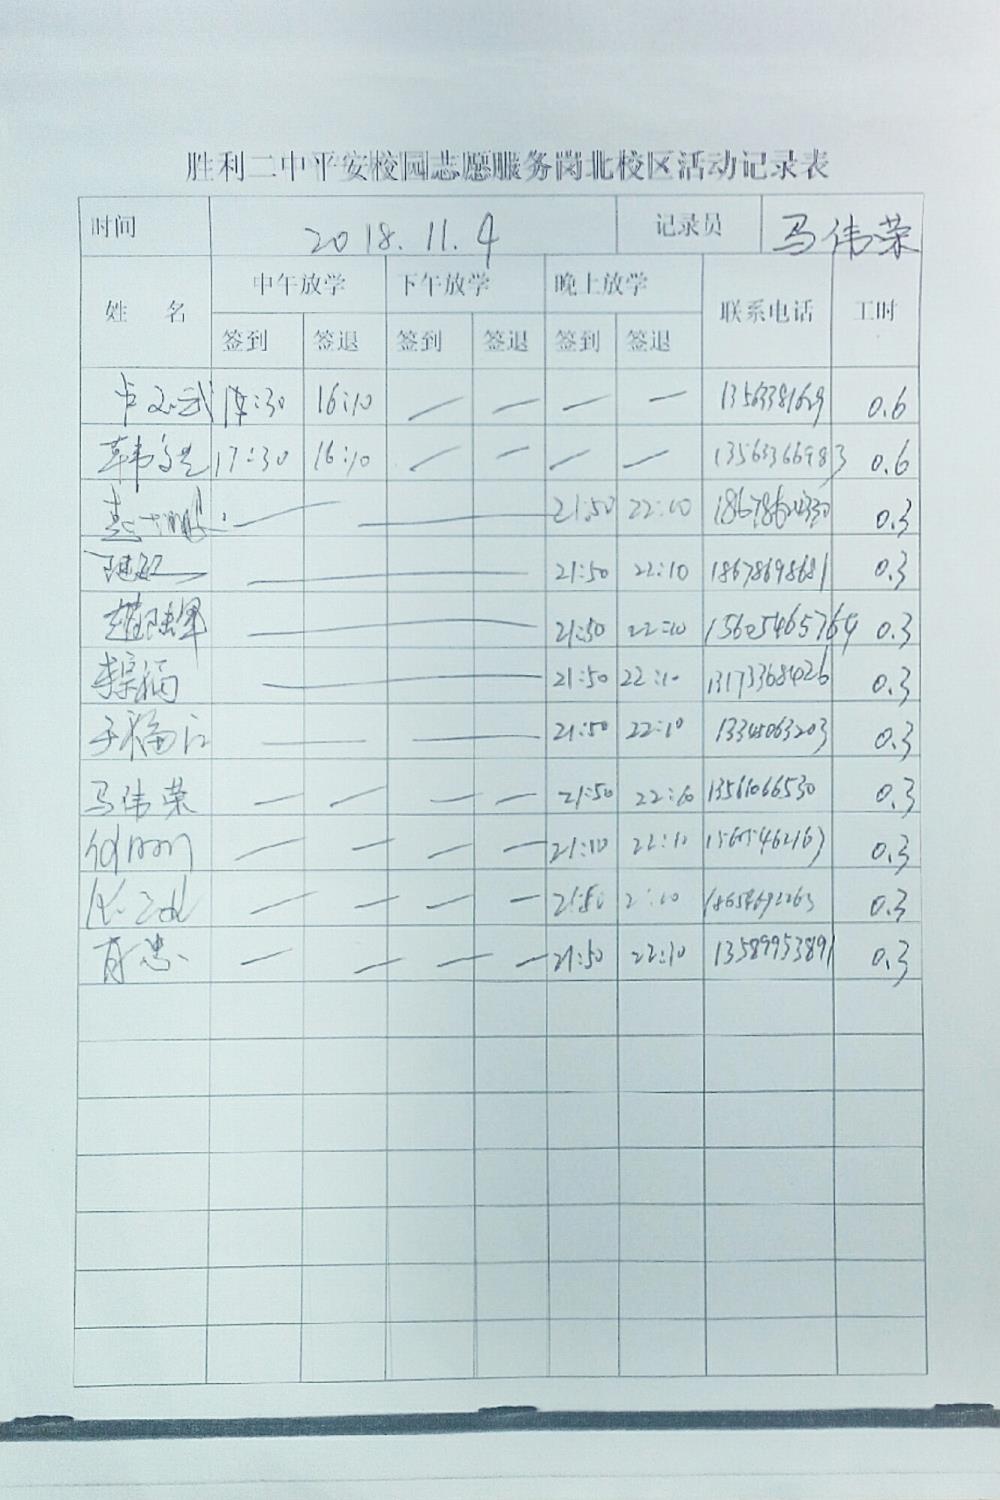 胜利二中平安校园志愿服务岗北校区活动记录表
时间 2018.11.4 记录员 马伟荣
姓 名 中午放学 下午放学 晚上放学 联系电话 工时
签到 签退 签到 签退 签到 签退
16:10 — — — — 0.6
17:30 16:10 — — — — 13563366983 0.6
— — 21:50 22:10 0.3
— 21:50 22:10 18678698681 0.3
— 21:50 22:10 15605465764 0.3
李宗福 — 21:50 22:10 13173368426 0.3
于福江 — — 21:50 22:10 13345063203 0.3
马伟荣 — — — — 21:50 22:10 13561066530 0.3
— — — — 21:10 22:10 15605462163 0.3
— — — — 21:50 0.3
— — — — 21:50 22:10 13589953891 0.3